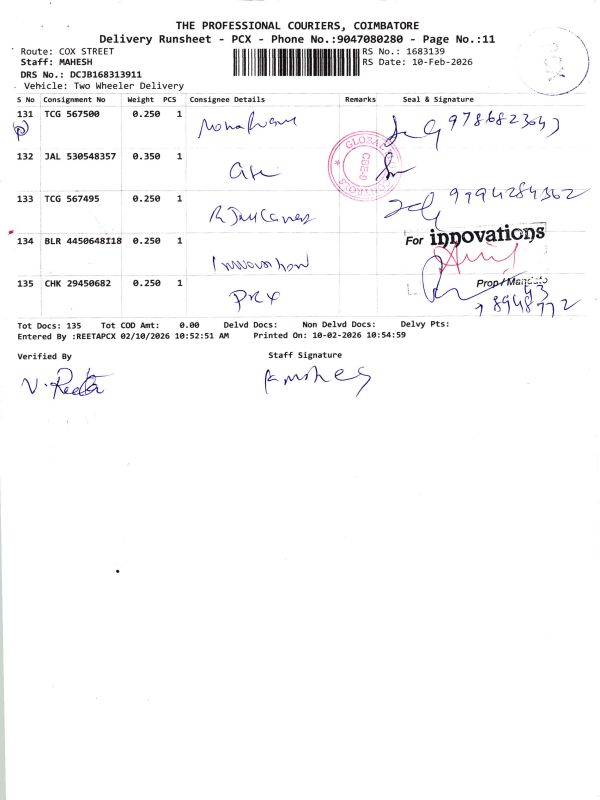 THE PROFESSIONAL COURIERS, COIMBATORE
Delivery Runsheet - PCX - Phone No.:9047080280 - Page No.:11
Route: COX STREET
RS No.: 1683139
Staff: MAHESH
RS Date: 10-Feb-2026
DRS No.: DCJB168313911
Vehicle: Two Wheeler Delivery
PCX
S No Consignment No Weight PCS Consignee Details Remarks Seal & Signature
131 TCG 567500 0.250 1
P
132 JAL 530548357 0.350 1
GLOBAL
133 TCG 567495 0.250 1 9994284362
134 BLR 4450648118 0.250 1 Innovation
For innovations
135 CHK 29450682 0.250 1 PCX
Prop/
Tot Docs: 135 Tot COD Amt: 0.00 Delvd Docs: Non Delvd Docs: Delvy Pts:
Entered By :REETAPCX 02/10/2026 10:52:51 AM Printed On: 10-02-2026 10:54:59
Verified By Staff Signature
V. Reeta